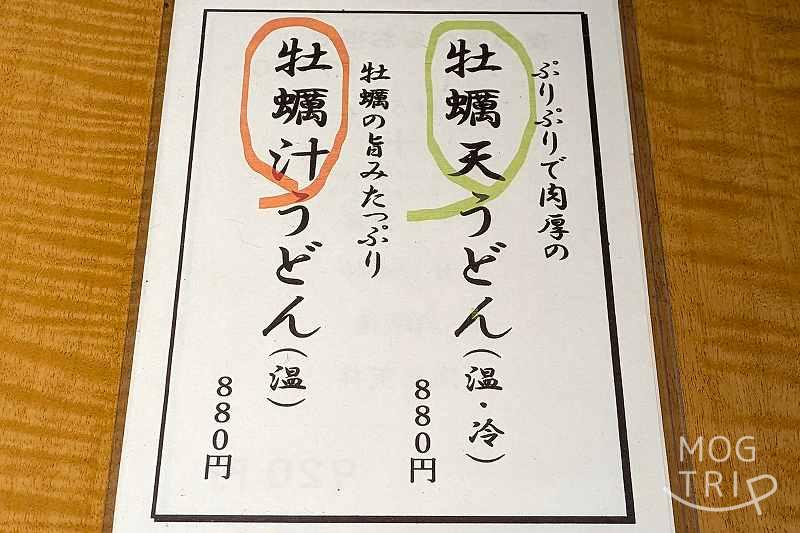 ぷりぷりで肉厚の
牡蠣天うどん（温・冷）
880円
牡蠣の旨みたっぷり
牡蠣汁うどん（温）
880円
MOG
TRIP